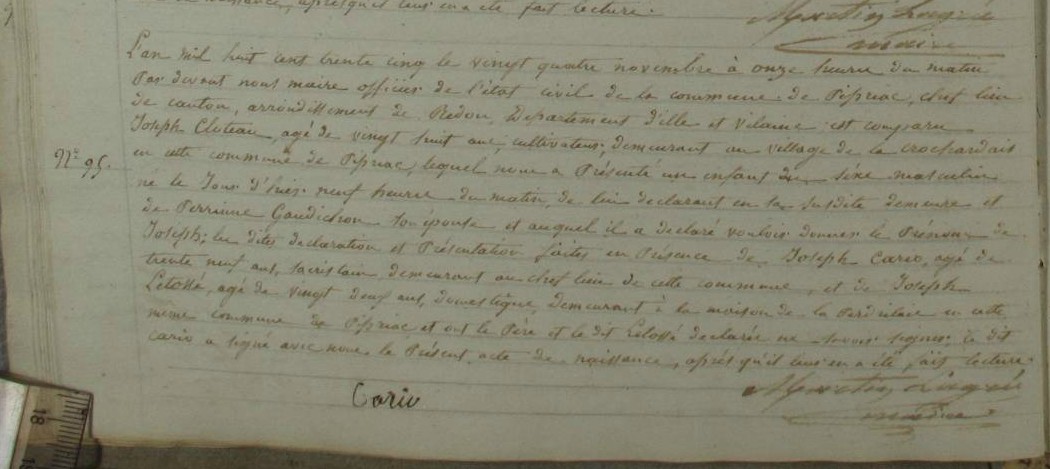 naissance, après qu'il leur en a été fait lecture.
Maire
L'an mil huit cent trente cinq le vingt quatre novembre à onze heures du matin
Par devant nous maire officier de l'état civil de la commune de Pipriac, chef lieu
de canton, arrondissement de Redon, Département d'Ille et Vilaine est comparu
Joseph Cloteau, agé de vingt huit ans, cultivateur, demeurant au village de la crochardais
Nº 95.
en cette commune de Pipriac, lequel nous a Présenté un enfant du sexe masculin
né le Jour d'hier neuf heures du matin, de lui declarant en sa susdite demeure et
de Perrinne Gaudichon son épouse et auquel il a declaré vouloir donner le Prénom de
Joseph; les dites declaration et Présentation faites en Présence de Joseph Cario, agé de
trente neuf ans, sacristain demeurant au chef lieu de cette commune, et de Joseph
Letossé, agé de vingt deux ans, domestique, demeurant à la maison de la en cette
même commune de Pipriac et ont le Père et le dit Letossé declarés ne savoir signer; le dit
cario a signé avec nous le Présent acte de naissance, après qu'il leur en a été fait lecture.
Cario
maire